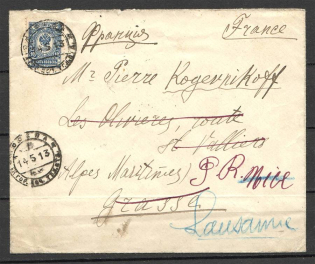 Франція France
Mr Pierre Kogevnikoff
Les Oliviers, route
St Vallier
(Alpes Maritimes) P.R. Nice
Grasse
Lausanne
14.5.13